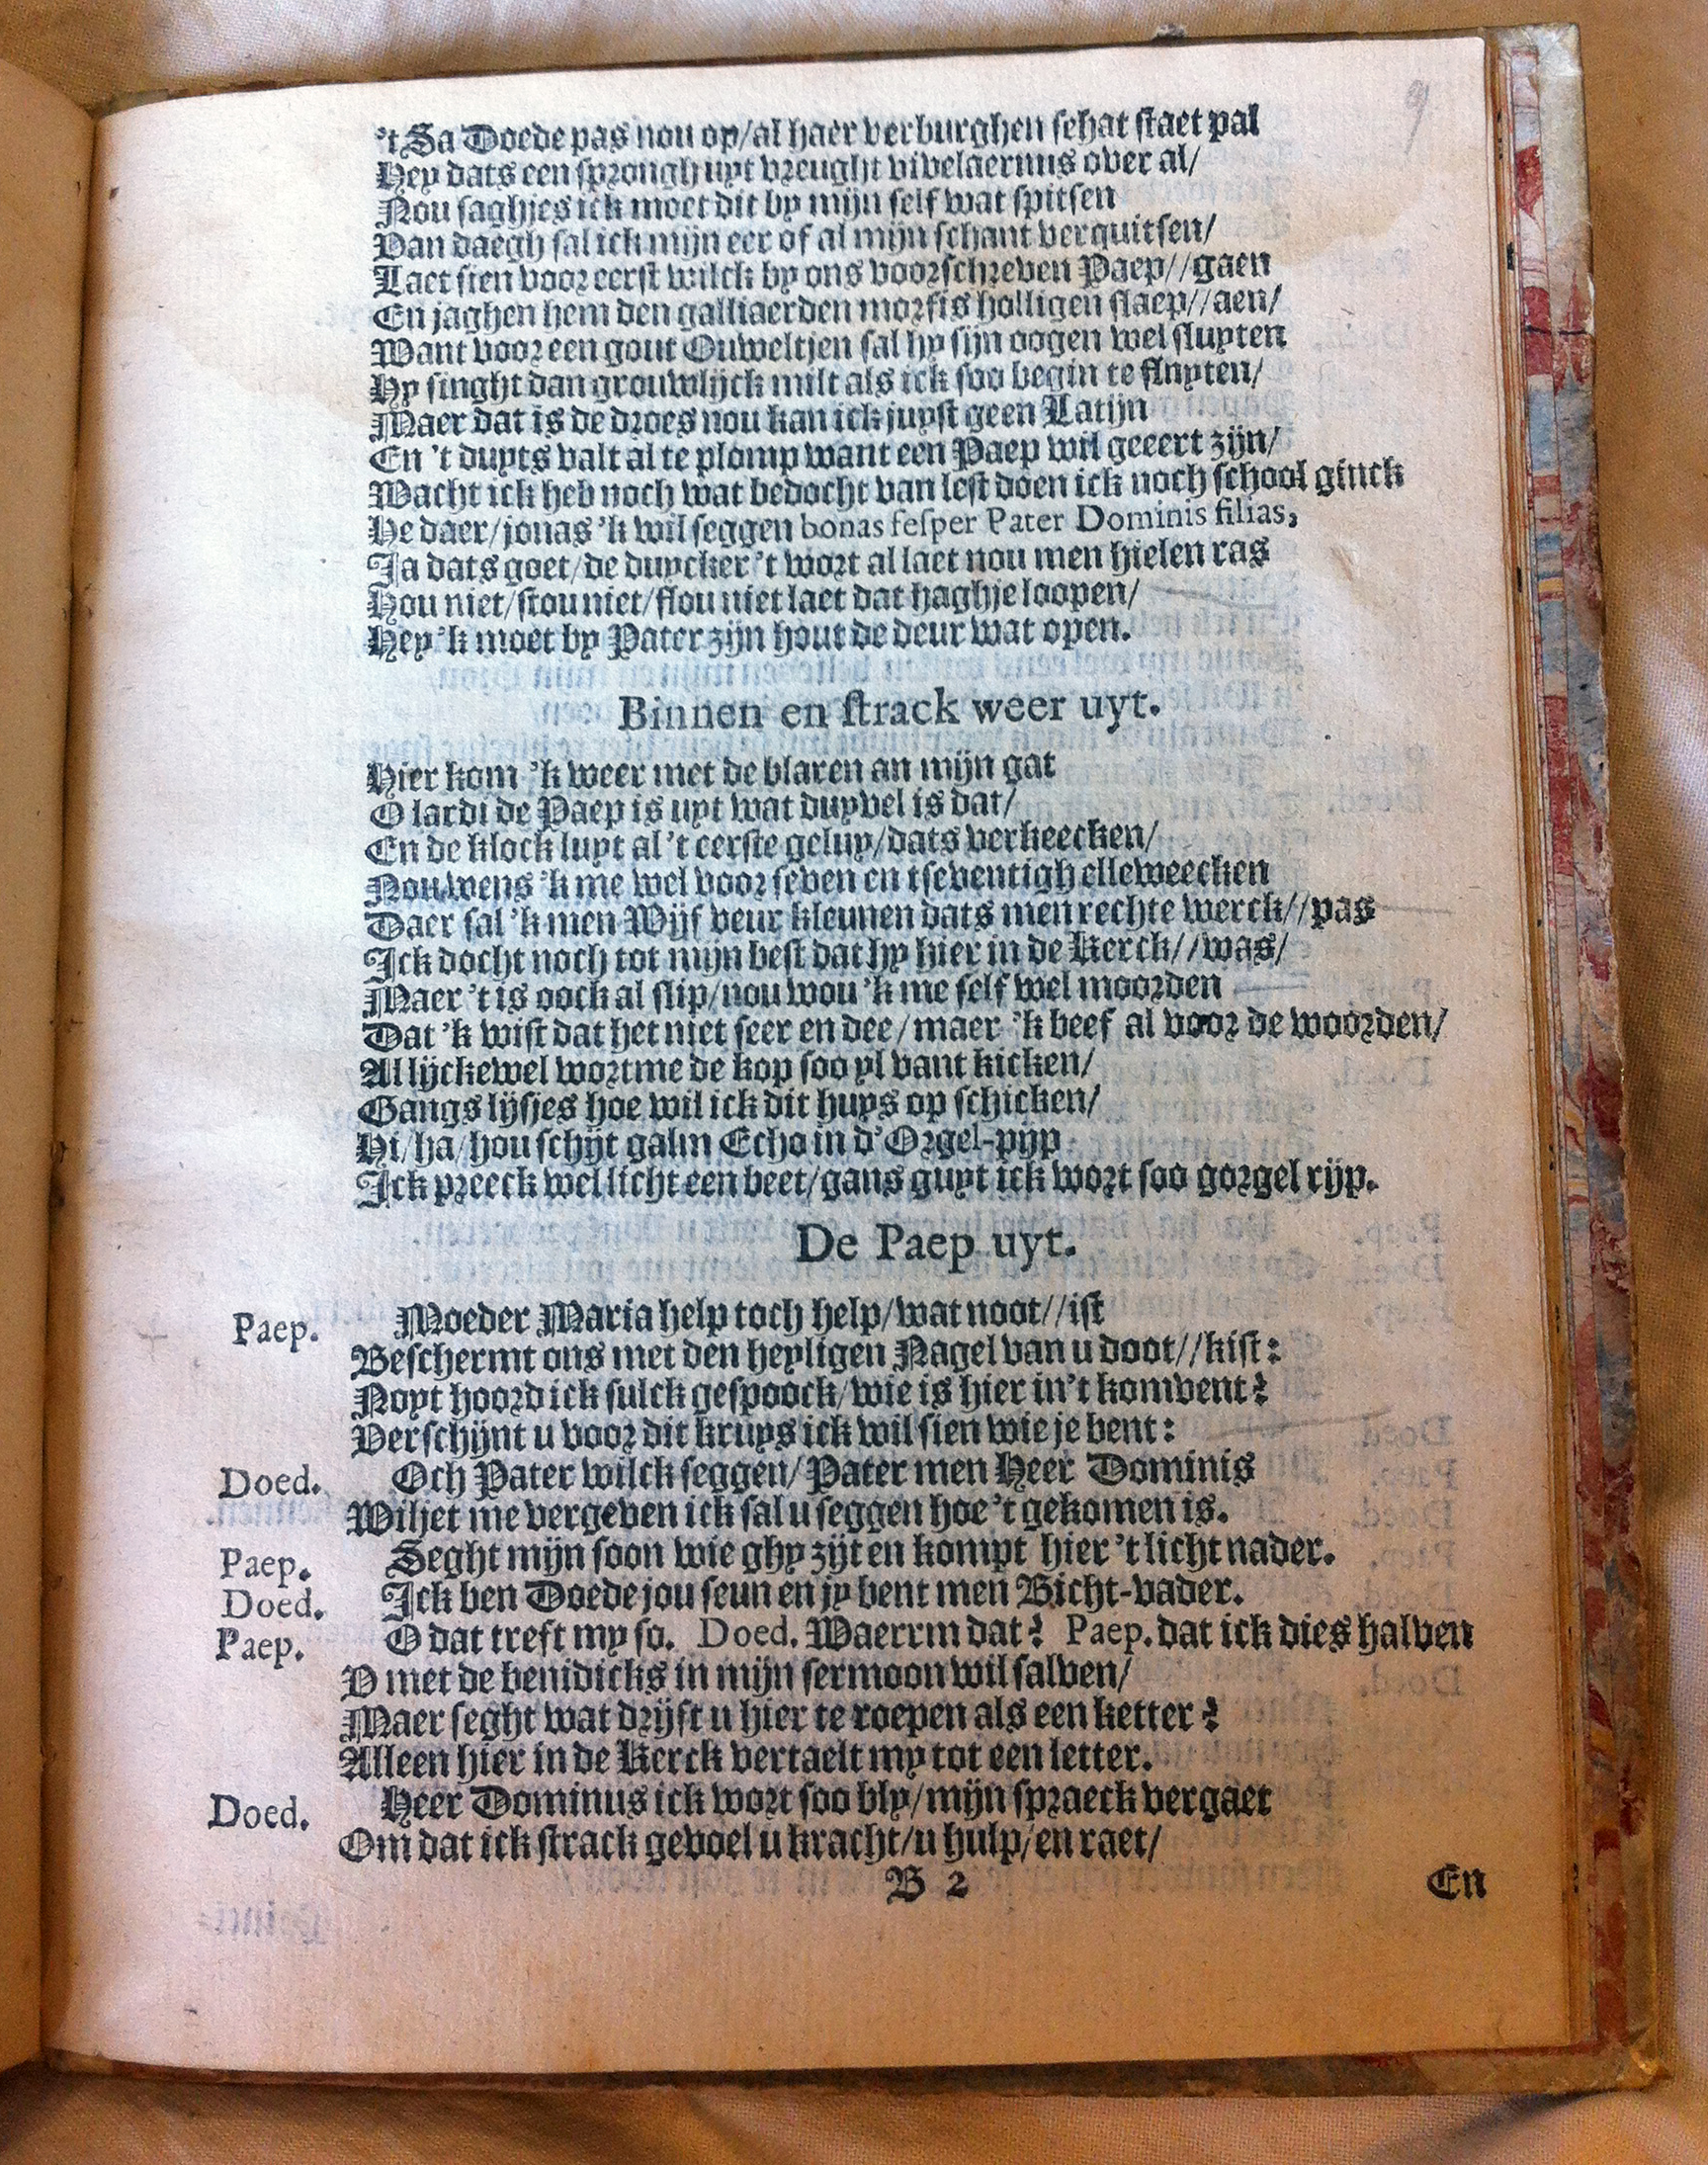 9
't Sa Doede pas nou op/al haer verburghen schat staet pal
Hey dats een sprongh uyt vreught vivelaermus over al/
Nou saghjes ick moet dit by mijn self wat spitsen
Dan daegh sal ick mijn eer of al mijn schant verquitsen/
Laet sien voor eerst wilck by ons voorschreven Paep//gaen
En jaghen hem den galliaerden morfis holligen slaep//aen/
Want voor een gout Ouweltjen sal hy sijn oogen wel sluyten
Hy singht dan grouwlijck milt als ick soo begin te fluyten/
Maer dat is de droes nou kan ick juyst geen Latijn
En 't duyts valt al te plomp want een Paep wil geeert zijn/
Wacht ick heb noch wat bedocht van lest doen ick noch school ginck
He daer/jonas 'k wil seggen bonas fesper Pater Dominis filias,
Ja dats goet/de duycker 't wort al laet nou men hielen ras
Hou niet/stou niet/flou niet laet dat haghje loopen/
Hey 'k moet by Pater zijn hout de deur wat open.
Binnen en strack weer uyt.
Hier kom 'k weer met de blaren an mijn gat
O lardi de Paep is uyt wat duyvel is dat/
En de klock luyt al 't eerste geluy/dats verkeecken/
Nou wens 'k me wel voor seven en tseventigh elleweecken
Daer sal 'k men Wijf veur kleunen dats men rechte werck//pas
Ick docht noch tot mijn best dat hy hier in de Kerck//was/
Maer 't is oock al slip/nou wou 'k me self wel moorden
Dat 'k wist dat het niet seer en dee/maer 'k beef al voor de woorden/
Al lijckewel wort me de kop soo yl vant kicken/
Gangs lijsjes hoe wil ick dit huys op schicken/
Hi/ha/hou schijt galm Echo in d'Orgel-pijp
Ick preeck wel licht een beet/gans guyt ick wort soo gorgel rijp.
De Paep uyt.
Paep. Moeder Maria help toch help/wat noot//ist
Beschermt ons met den heyligen Nagel van u doot//kist:
Noyt hoord ick sulck gespoock/wie is hier in't konvent?
Verschijnt u voor dit kruys ick wil sien wie je bent:
Doed. Och Pater wilck seggen/Pater men Heer Dominis
Wiljet me vergeven ick sal u seggen hoe 't gekomen is.
Paep. Seght mijn soon wie ghy zijt en kompt hier 't licht nader.
Doed. Ick ben Doede jou seun en jy bent men Bicht-vader.
Paep. O dat treft my so. Doed. Waerrm dat? Paep. dat ick dies halven
V met de benidicks in mijn sermoon wil salven/
Maer seght wat drijft u hier te roepen als een ketter?
Alleen hier in de Kerck vertaelt my tot een letter.
Doed. Heer Dominus ick wort soo bly/mijn spraeck vergaet
Om dat ick strack gevoel u kracht/u hulp/en raet/
B 2 En